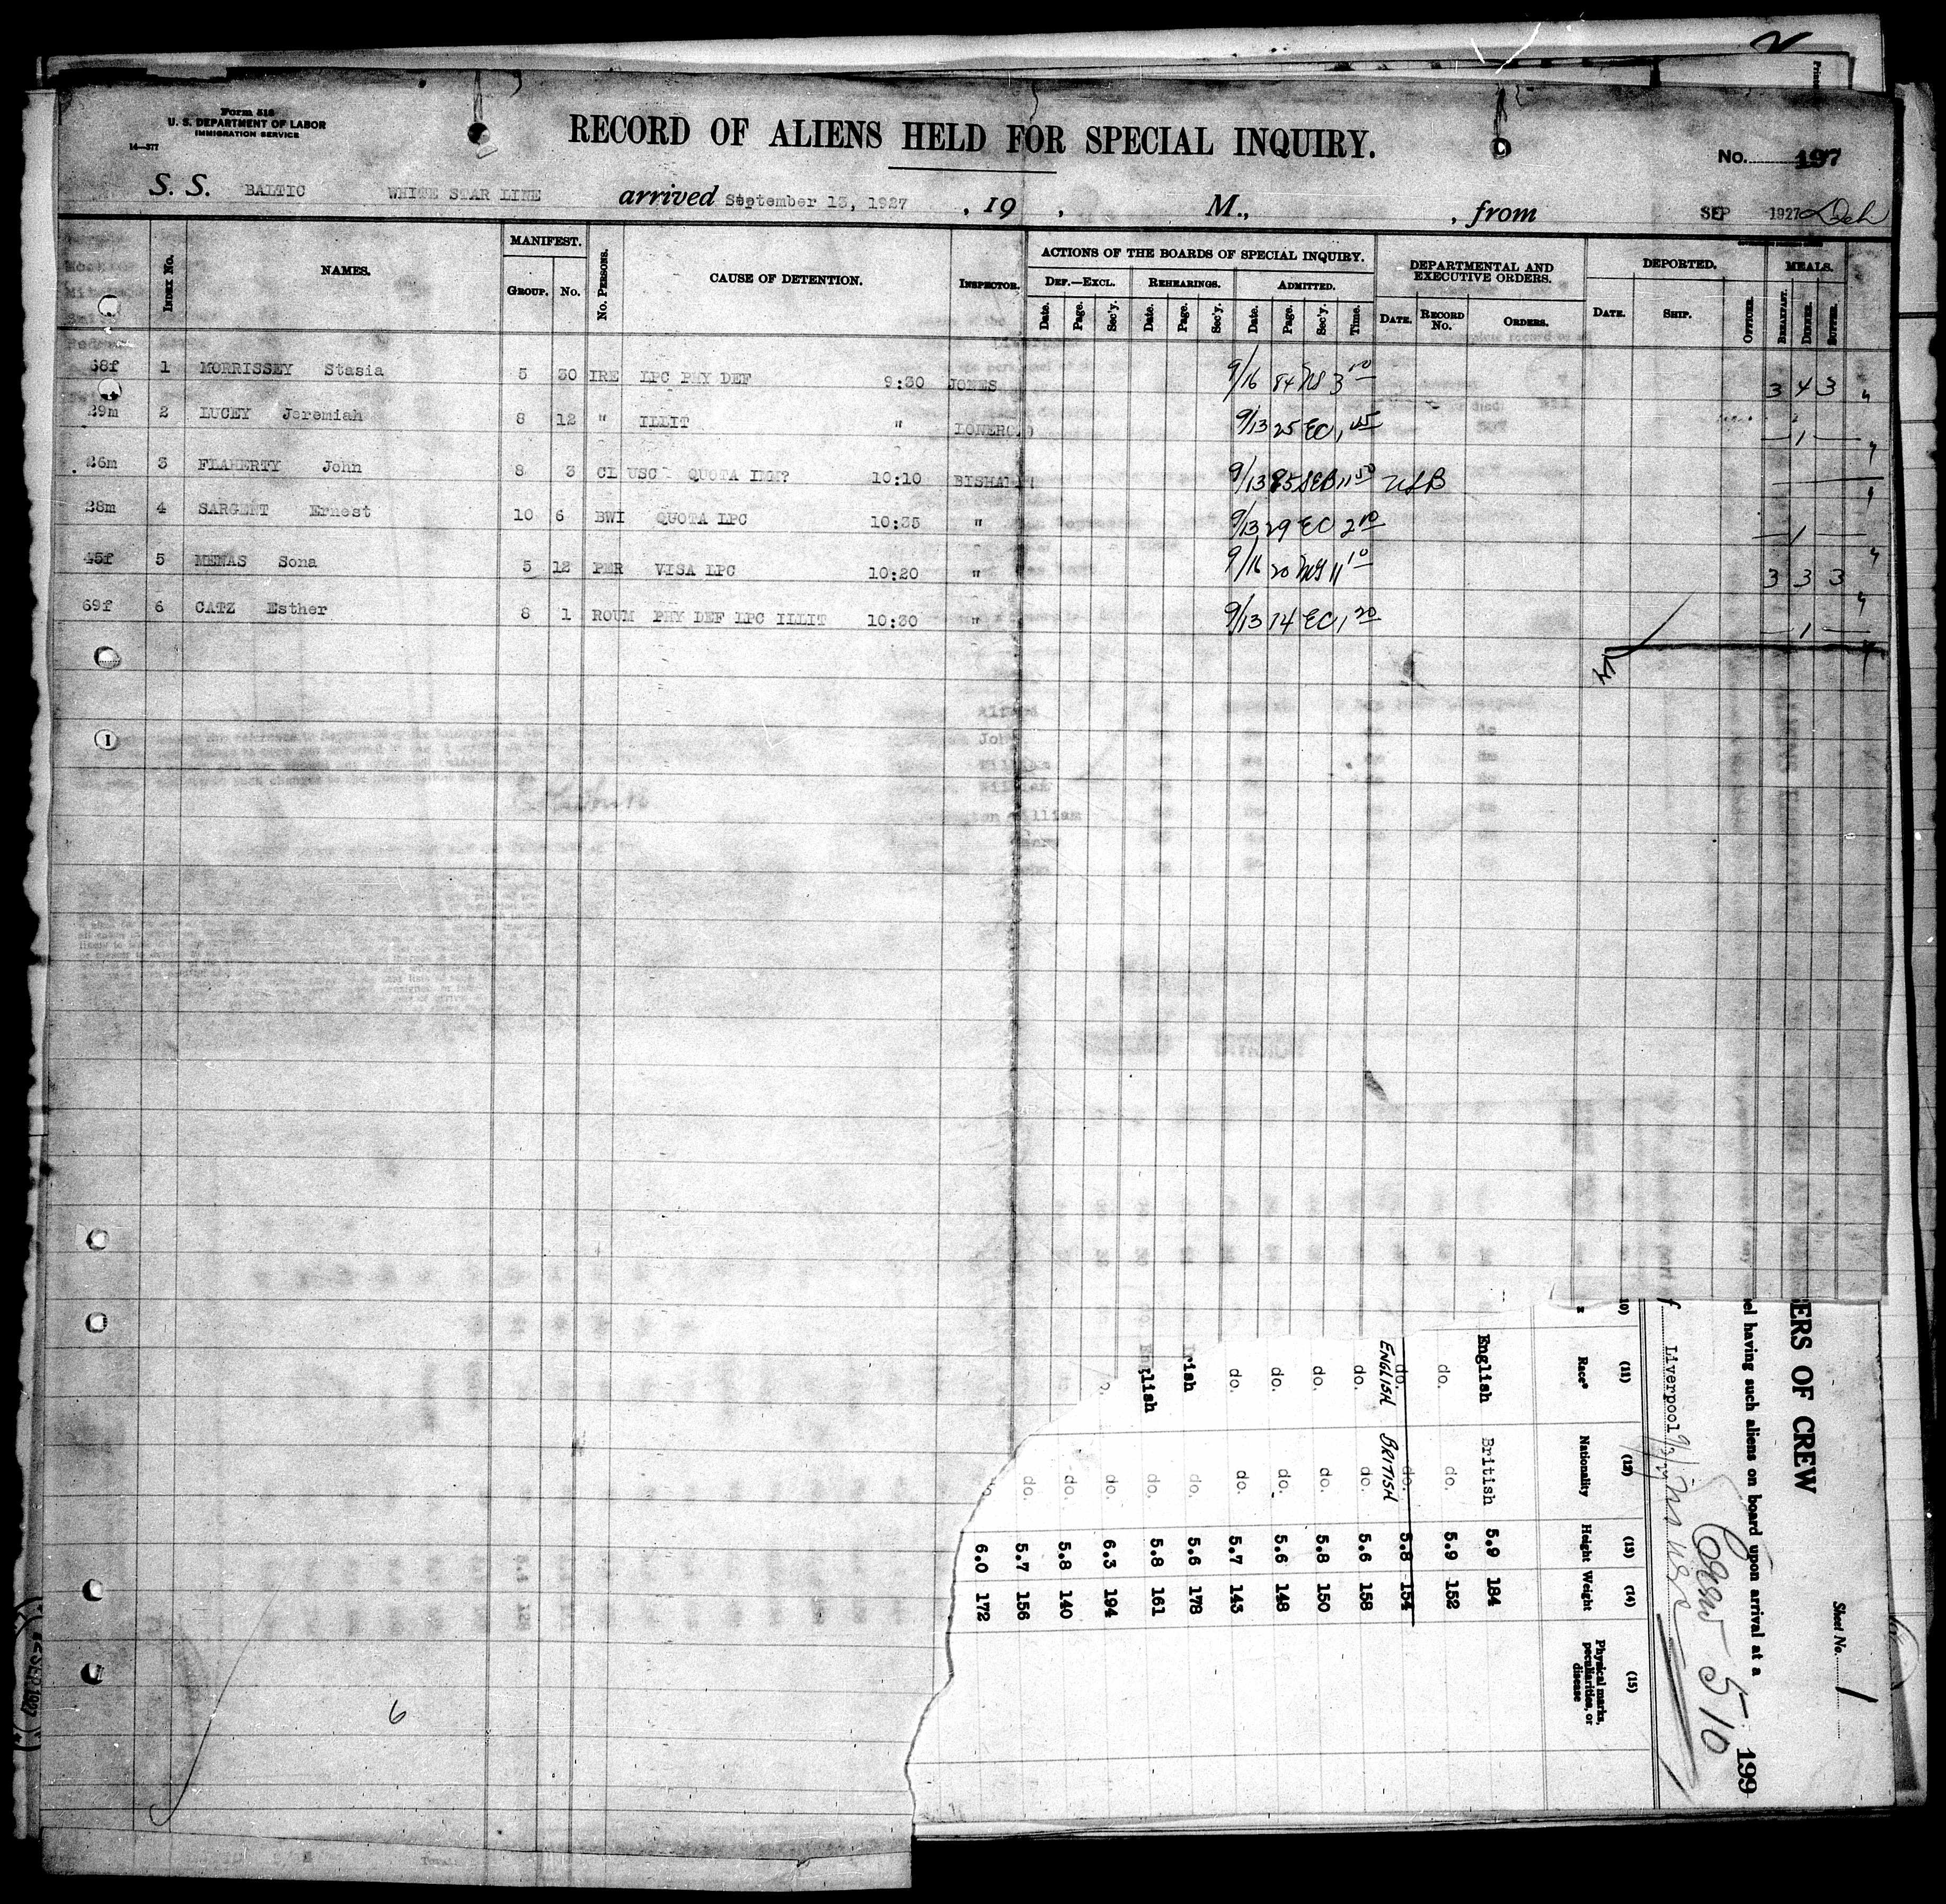 Form 518
U. S. DEPARTMENT OF LABOR
IMMIGRATION SERVICE
14—377
RECORD OF ALIENS HELD FOR SPECIAL INQUIRY.
No. 197
S. S. BALTIC WHITE STAR LINE arrived September 13, 1927, 19 , M., , from SEP 1927
Index No. NAMES. MANIFEST. Group. No. No. Persons. CAUSE OF DETENTION. Inspector. ACTIONS OF THE BOARDS OF SPECIAL INQUIRY. DEPARTMENTAL AND EXECUTIVE ORDERS. DEPORTED. MEALS.
Def.—Excl. Rehearings. Admitted.
Date. Page. Sec'y. Date. Page. Sec'y. Date. Page. Sec'y. Time. Date. Record No. Orders. Date. Ship. Officer. Breakfast. Dinner. Supper.
68f 1 MORRISSEY Stasia 5 30 IRE LPC PHY DEF 9:30 JONES 9/16 84 NS 3 3 4 3
29m 2 LUCEY Jeremiah 8 12 " ILLIT " LONERG 9/13 25 EC 1 45 — 1 —
26m 3 FLAHERTY John 8 3 CL USC QUOTA IMM? 10:10 9/13 85 SEB 11 50
28m 4 SARGENT Ernest 10 6 BWI QUOTA LPC 10:35 " 9/13 29 EC 2 10 — 1 —
45f 5 MENAS Sona 5 12 PER VISA LPC 10:20 " 9/16 20 11 10 3 3 3
69f 6 CATZ Esther 8 1 ROUM PHY DEF LPC ILLIT 10:30 " 9/13 14 EC 1 20 — 1 —
6
ERS OF CREW
Sheet No. 1
el having such aliens on board upon arrival at a
Liverpool
Crew 510
199
(11) Race* (12) Nationality (13) Height (14) Weight (15) Physical marks, peculiarities, or disease
English British 5.9 184
do. do. 5.9 152
do. do. 5.8 154
ENGLISH BRITISH
do. do. 5.6 158
do. do. 5.8 150
do. do. 5.6 148
do. do. 5.7 143
rish do. 5.6 178
glish do. 5.8 161
do. 6.3 194
do. 5.8 140
do. 5.7 156
do. 6.0 172